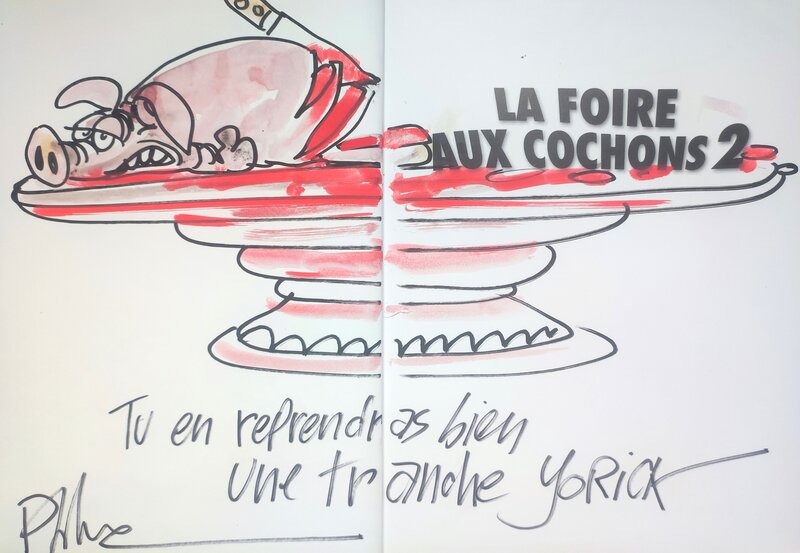 LA FOIRE
AUX COCHONS 2
Tu en reprendras bien
une tranche YORICK